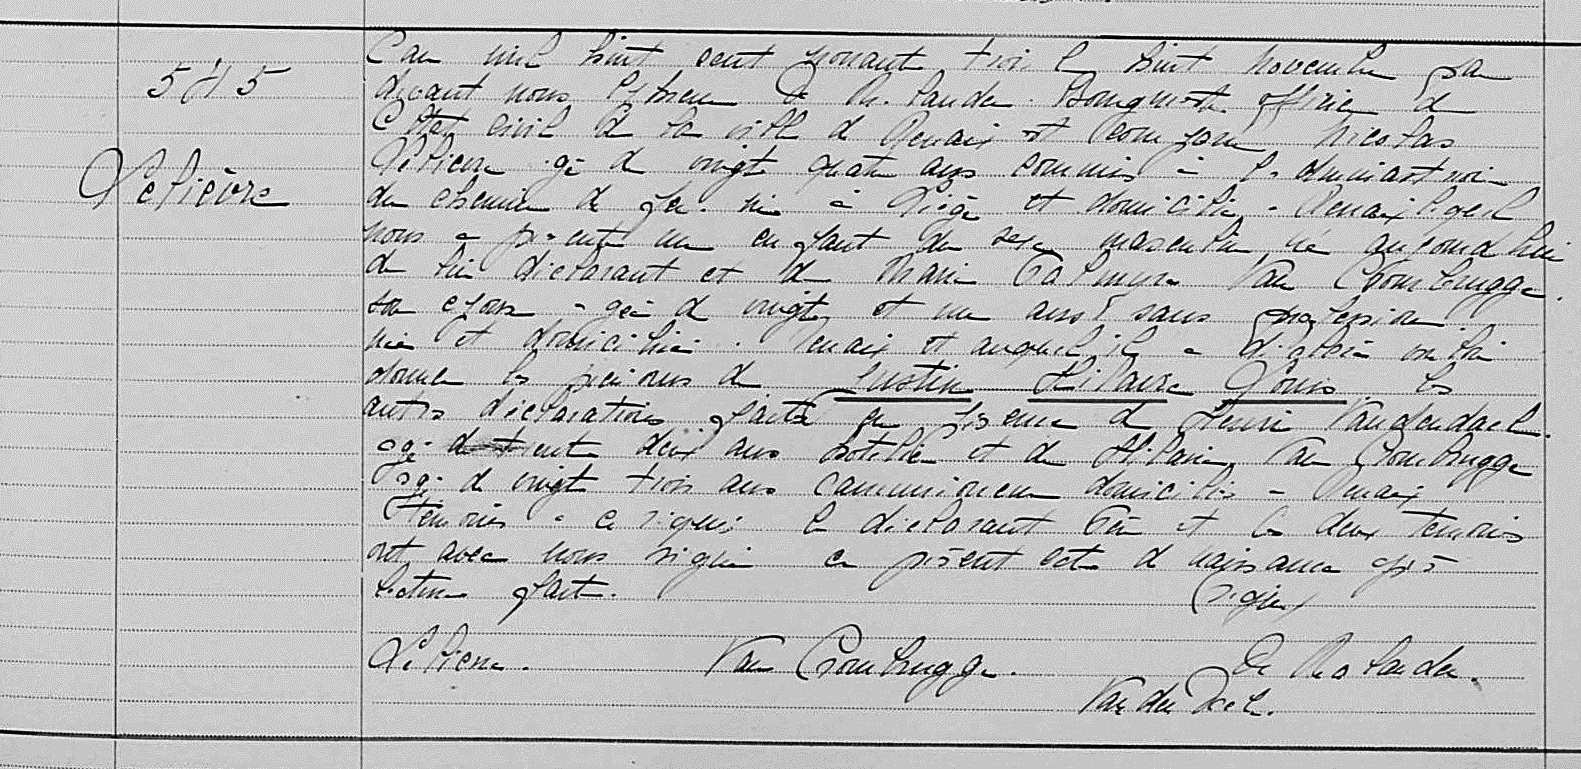 L'an mil huit cent nonante trois le huit novembre par
devant nous Officier de
l'état civil de la ville de Renaix est comparu Nicolas
Lelièvre âgé de vingt quatre ans commis à l'administration
du chemin de fer né à Liège et domicilié à Renaix lequel
nous a présenté un enfant du sexe masculin né aujourd'hui
de lui déclarant et de Marie Palmyre Van Crombrugge
son épouse âgée de vingt et un ans sans profession
née et domiciliée à Renaix et auquel il a déclaré vouloir
donner les prénoms de Justin Hilaire Louis les
autres déclarations faites en présence de Henri Vandendael
âgé de trente deux ans hôtelier et de Hilaire Van Crombrugge
âgé de vingt trois ans camionneur domiciliés à Renaix
témoins à ce requis le déclarant Père et les deux témoins
ont avec nous signé le présent acte de naissance après
lecture faite. (signé)
Lelièvre. Van Crombrugge. De Malander.
Vanden Dael.
Lelièvre